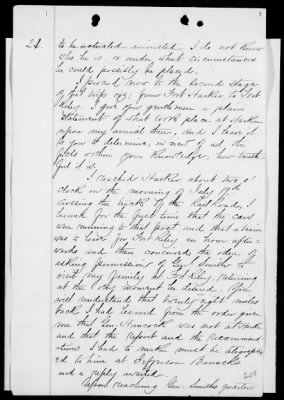 21.
to be activated animated I do not know
who he is, or under what circumstances
he could possibly be placed.
I proceed now to the second stage
of my trip viz: from Fort Harker to Fort
Riley. I give you gentlemen a plain
statement of what took place at Harker
upon my arrival there, and I leave it
to you to determine, in view of all the
facts within your knowledge, how truth-
ful it is.
I reached Harker about two o'
clock on the morning of July 19th
crossing the track of the Railroad, I
learned for the first time that the cars
were running to that post and that a train
was to leave for Fort Riley an hour after-
wards and then conceived the idea of
asking permission of Gen. Smith to
visit my family at Fort Riley, returning
at the very moment he desired. You
will understand that twenty eight miles
back I had learned from the order given
me that Gen. Hancock was not at Harker
and that the report and the recommend-
ations I had to make must be telegraph-
ed to him at Jefferson Barracks
and a reply awaited.
Upon reaching Gen. Smith's quarters